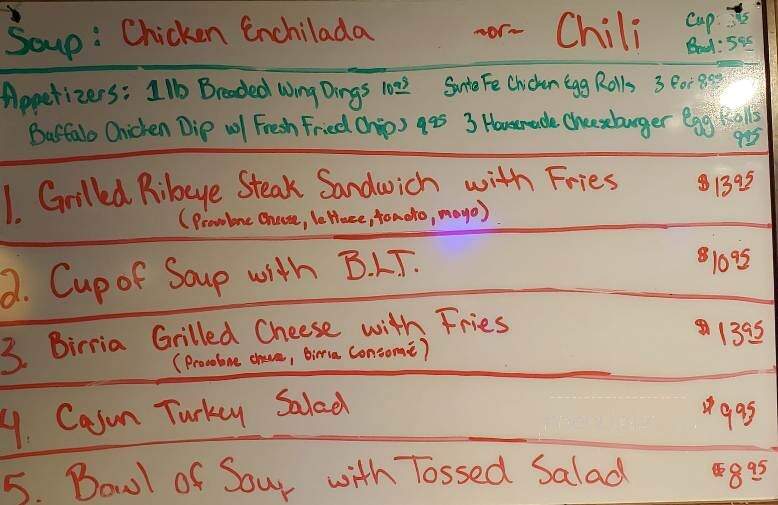 Soup: Chicken Enchilada ~or~ Chili Cup: 395
Bowl: 595
Appetizers: 1 lb Breaded Wing Dings 1095 Sante Fe Chicken Egg Rolls 3 for 895
Buffalo Chicken Dip w/ Fresh Fried Chips 995 3 Housemade Cheeseburger Egg Rolls
995
1. Grilled Ribeye Steak Sandwich with Fries $1395
(Provolone Cheese, lettuce, tomato, mayo)
2. Cup of Soup with B.L.T. $1095
3. Birria Grilled Cheese with Fries $1395
(Provolone cheese, birria consomé)
4. Cajun Turkey Salad $995
5. Bowl of Soup with Tossed Salad $895